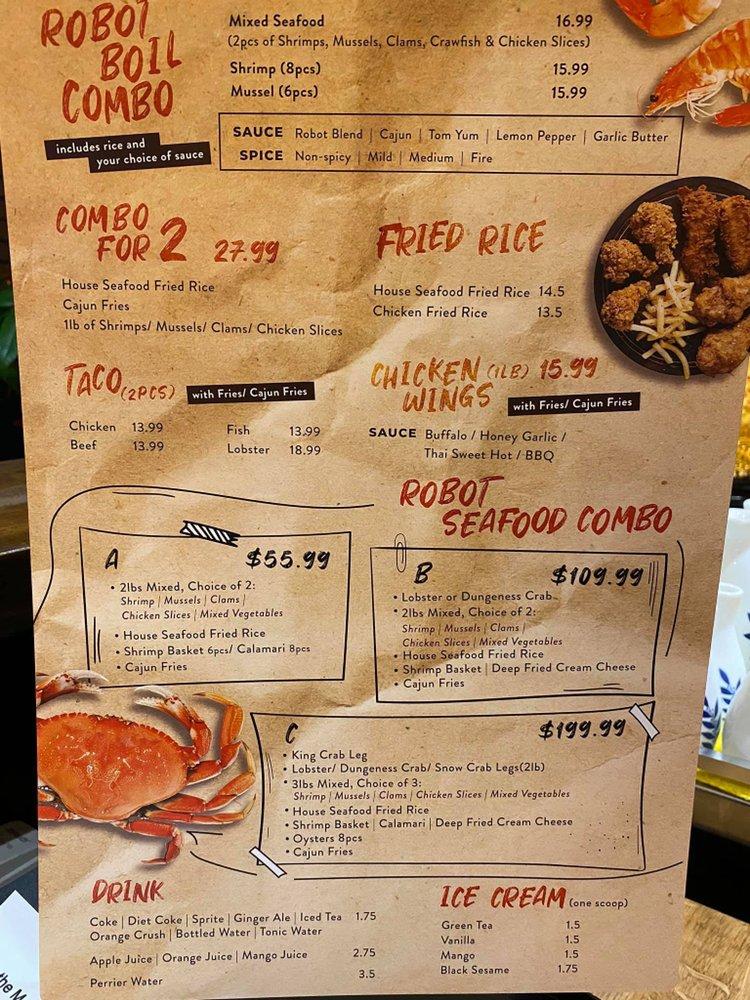 ROBOT
BOIL
COMBO
includes rice and
your choice of sauce
Mixed Seafood 16.99
(2pcs of Shrimps, Mussels, Clams, Crawfish & Chicken Slices)
Shrimp (8pcs) 15.99
Mussel (6pcs) 15.99
SAUCE Robot Blend | Cajun | Tom Yum | Lemon Pepper | Garlic Butter
SPICE Non-spicy | Mild | Medium | Fire
COMBO
FOR 2 27.99
House Seafood Fried Rice
Cajun Fries
1lb of Shrimps/ Mussels/ Clams/ Chicken Slices
FRIED RICE
House Seafood Fried Rice 14.5
Chicken Fried Rice 13.5
TACO (2PCS) with Fries/ Cajun Fries
Chicken 13.99 Fish 13.99
Beef 13.99 Lobster 18.99
CHICKEN (1LB) 15.99
WINGS with Fries/ Cajun Fries
SAUCE Buffalo / Honey Garlic /
Thai Sweet Hot / BBQ
ROBOT
SEAFOOD COMBO
A $55.99
• 2lbs Mixed, Choice of 2:
Shrimp | Mussels | Clams |
Chicken Slices | Mixed Vegetables
• House Seafood Fried Rice
• Shrimp Basket 6pcs/ Calamari 8pcs
• Cajun Fries
B $109.99
• Lobster or Dungeness Crab
• 2lbs Mixed, Choice of 2:
Shrimp | Mussels | Clams |
Chicken Slices | Mixed Vegetables
• House Seafood Fried Rice
• Shrimp Basket | Deep Fried Cream Cheese
• Cajun Fries
C $199.99
• King Crab Leg
• Lobster/ Dungeness Crab/ Snow Crab Legs(2lb)
• 3lbs Mixed, Choice of 3:
Shrimp | Mussels | Clams | Chicken Slices | Mixed Vegetables
• House Seafood Fried Rice
• Shrimp Basket | Calamari | Deep Fried Cream Cheese
• Oysters 8pcs
• Cajun Fries
DRINK
Coke | Diet Coke | Sprite | Ginger Ale | Iced Tea 1.75
Orange Crush | Bottled Water | Tonic Water
Apple Juice | Orange Juice | Mango Juice 2.75
Perrier Water 3.5
ICE CREAM (one scoop)
Green Tea 1.5
Vanilla 1.5
Mango 1.5
Black Sesame 1.75